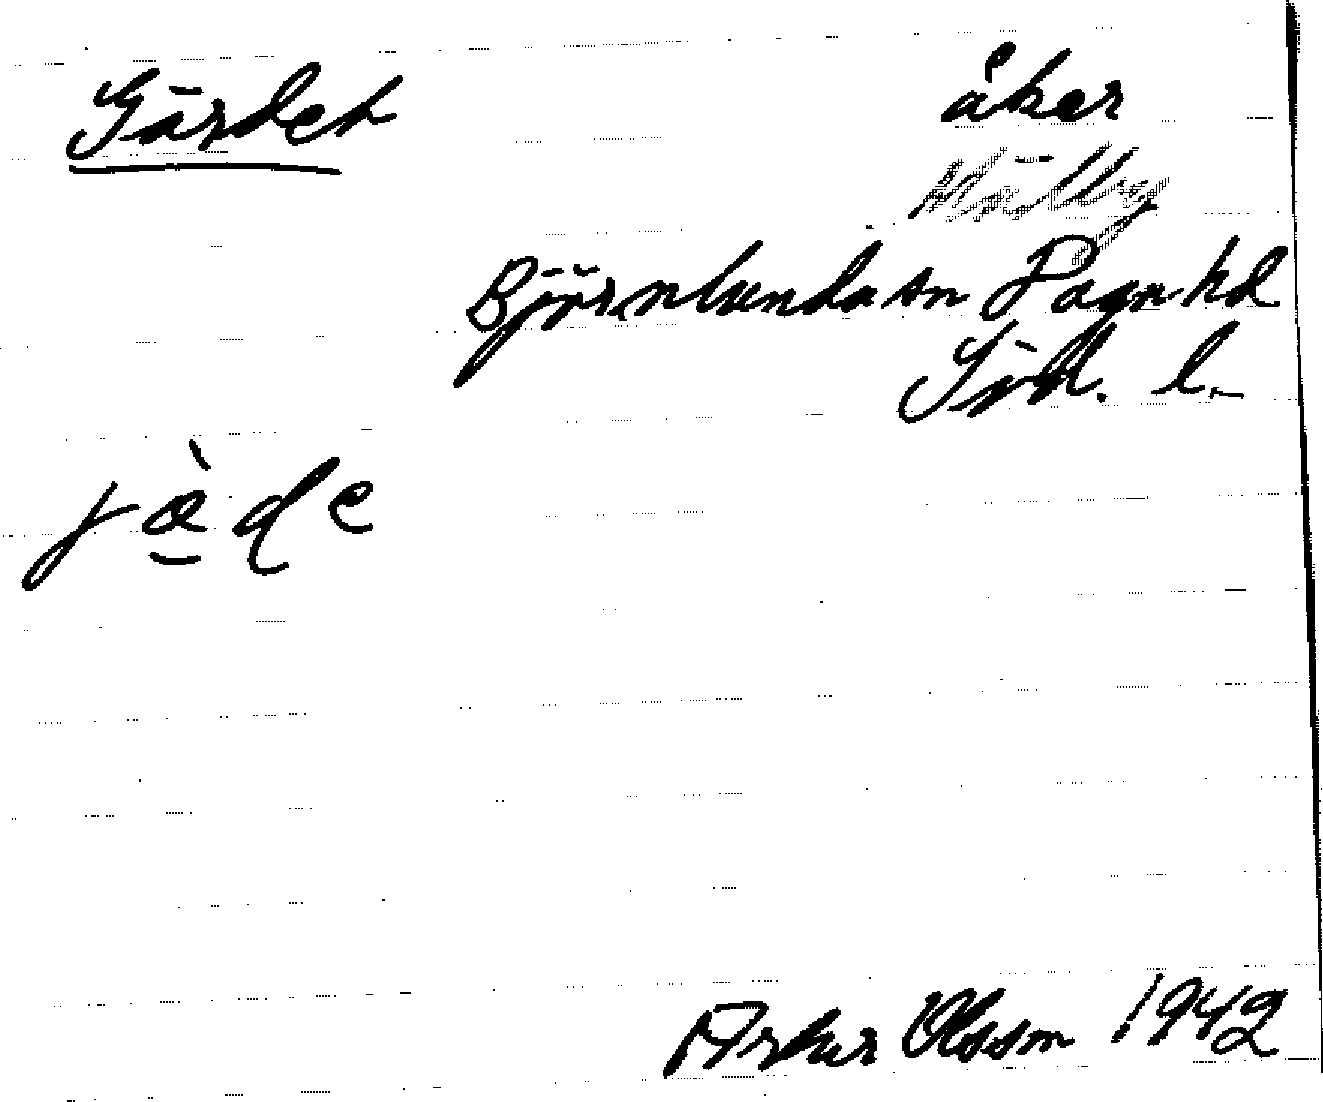 Gärdet
åker
Björnlunda sn Daga hd
Söd. l.
jæ̀de
Artur Olsson 1942